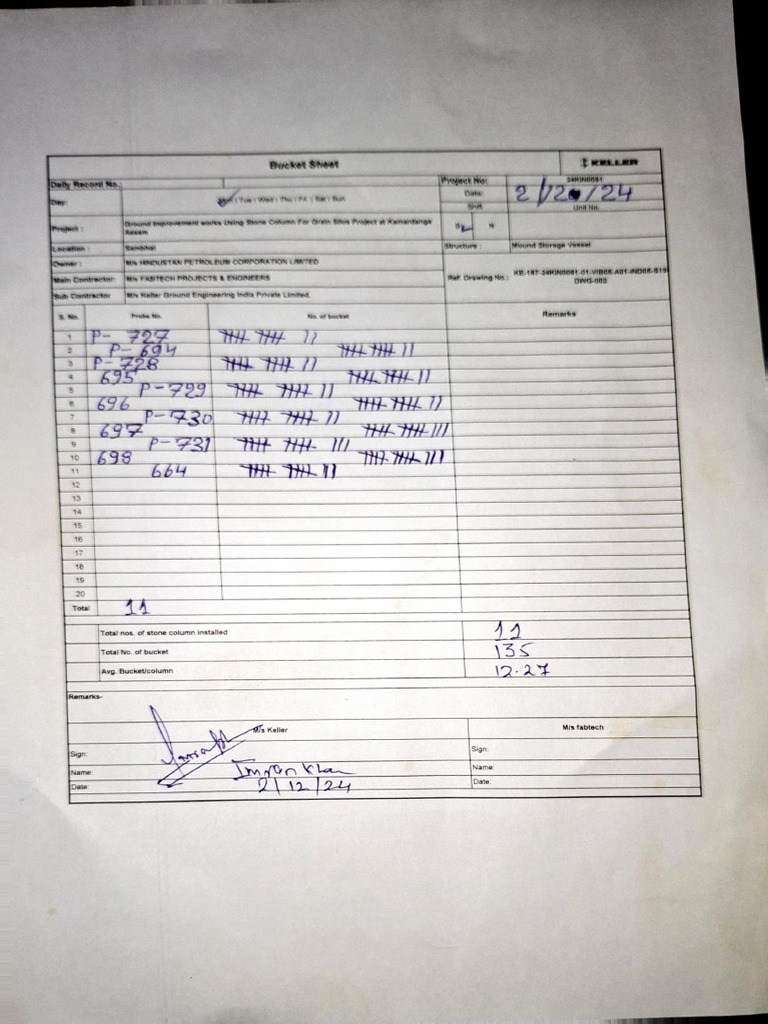 Bucket Sheet
KELLER
Daily Record No.:
Project No:
Day:
Mon / Tue / Wed / Thu / Fri / Sat / Sun
Date:
Shift
Unit No.
Project :
Ground Improvement works Using Stone Column For Grain Silos Project at Kamardanga
Assam
D N
Location :
Sambhal
Structure :
Mound Storage Vessel
Owner :
M/s HINDUSTAN PETROLEUM CORPORATION LIMITED
Main Contractor:
M/s FABTECH PROJECTS & ENGINEERS
Ref. Drawing No.:
Sub Contractor
M/s Keller Ground Engineering India Private Limited.
S. No. Probe No. No. of bucket Remarks
1 P- 727 𝍸 𝍸 ||
2 P- 694 𝍸 𝍸 ||
3 P- 728 𝍸 𝍸 ||
4 695 𝍸 𝍸 ||
5 P-729 𝍸 𝍸 ||
6 696 𝍸 𝍸 ||
7 P-730 𝍸 𝍸 ||
8 697 𝍸 𝍸 |||
9 P-731 𝍸 𝍸 |||
10 698 𝍸 𝍸 |||
11 664 𝍸 𝍸 ||
12
13
14
15
16
17
18
19
20
Total 11
Total nos. of stone column installed 11
Total No. of bucket 135
Avg. Bucket/column 12.27
Remarks-
M/s Keller M/s fabtech
Sign: Sign:
Name: Imran Khan Name:
Date: 2/12/24 Date: